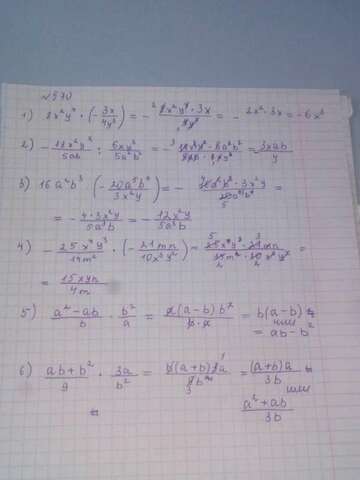 №570
1) 8x²y⁴ · (-3x/4y³) = - ²8x²y⁴·3x/4y³ = - 2x²·3x = -6x³
2) - 18x²y²/5ab : 6xy³/5a²b² = -³ 18x²y²·5a²b²/5ab·6xy³ = 3xab/y
3) 16a²b³ : (-20a⁵b⁴/3x²y) = - 16a²b³·3x²y/20a⁵b⁴ =
= - 4·3x²y/5a³b = - 12x²y/5a³b
4) - 25x⁴y³/14m² · (-21mn/10x³y²) = 25x⁴y³·21mn/14m²·10x³y² =
= 15xyn/4m
5) a²-ab/b · b²/a = a(a-b)b²/b·a = b(a-b)
или
= ab-b²
6) ab+b²/9 · 3a/b² = b(a+b)3a/9b² = (a+b)a/3b
или
a²+ab/3b